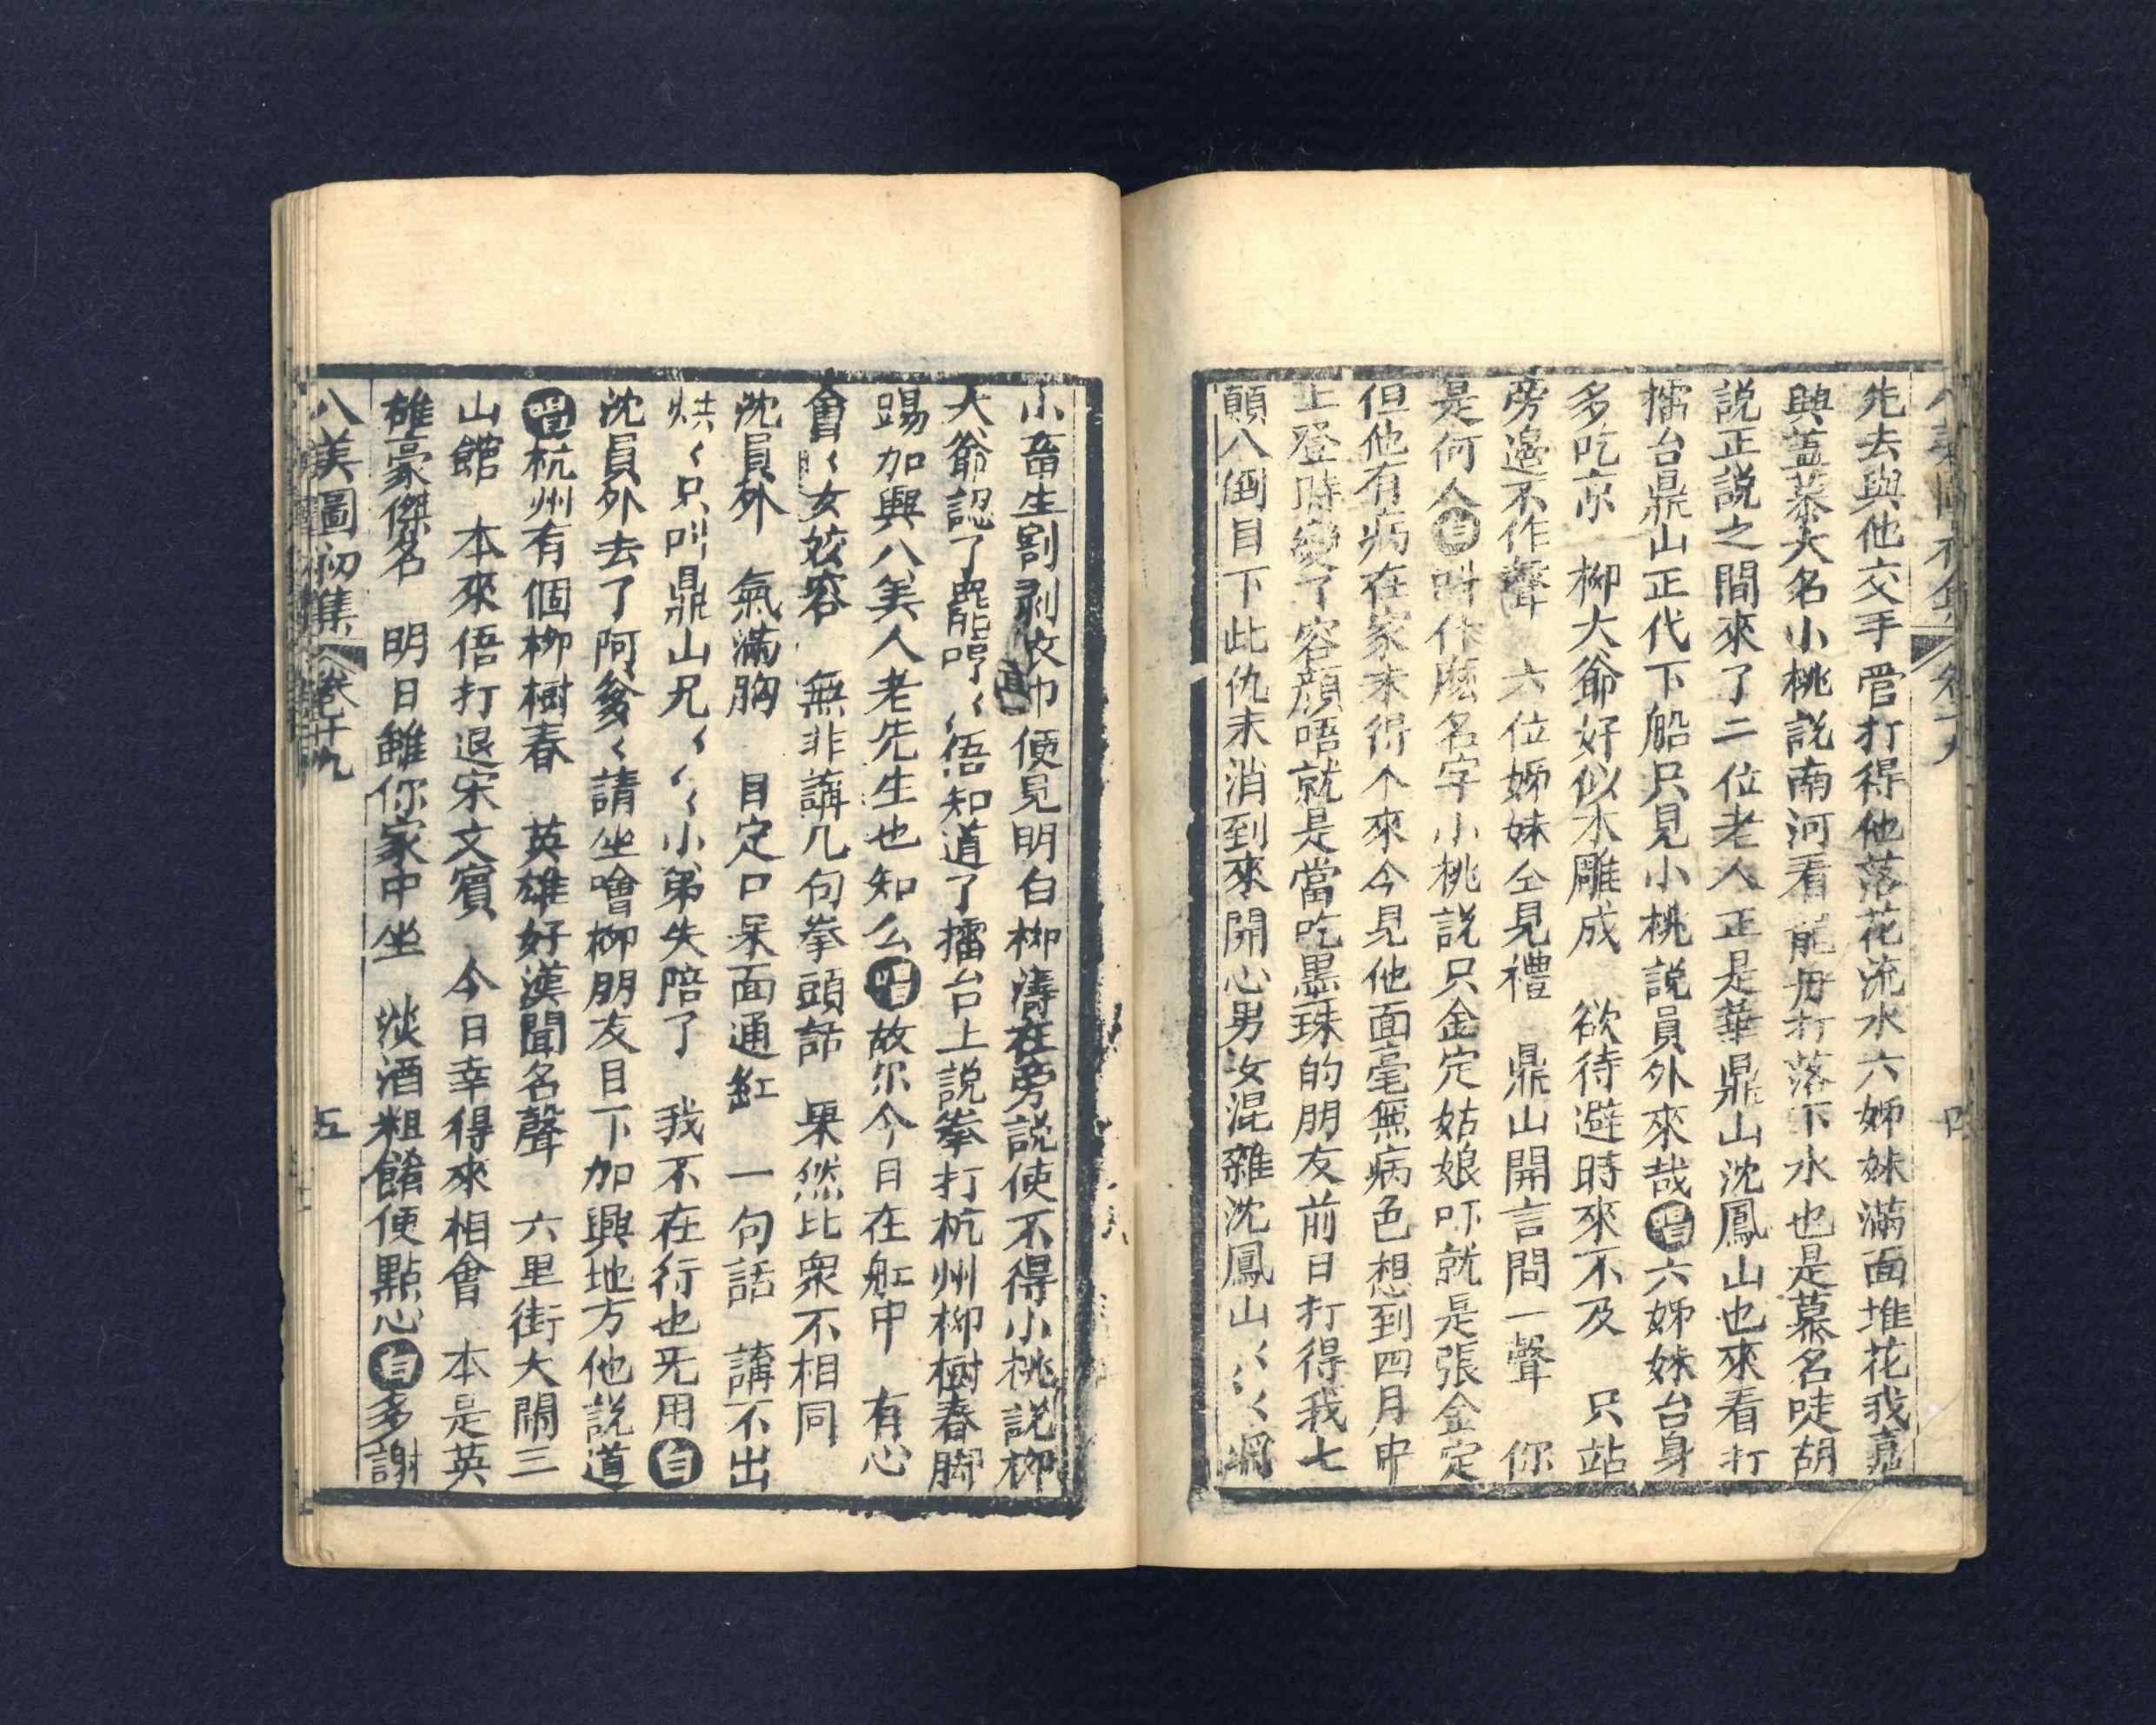 先去與他交手管打得他落花流水六姊妹滿面堆花我嘉
興盖慕大名小桃説南河看龍舟打落下水也是慕名哫胡
説正説之間來了二位老人正是華鼎山沈鳳山也來看打
擂台鼎山正代下船只見小桃説員外來哉唱六姊妹台身
多吃京　柳大爺好似木雕成　欲待避時來不及　只站
旁邉不作聲　六位姊妹仝見禮　鼎山開言問一聲　你
是何人白叫作麽名字小桃説只金定姑娘吓就是張金定
但他有病在家未得个來今見他面毫無病色想到四月中
上登時變了容顔唔就是當吃黒珠的朋友前日打得我七
顛八倒目下此仇未消到來開心男女混雜沈鳳山〻〻〻
小畜生割剥衣巾便見明白柳濤在旁説使不得小桃説柳
大爺認了哼〻〻俉知道了擂台上説拳打杭州柳樹春脚
踢加興八美人老先生也知么唱故尔今日在舡中　有心
會〻女姣容　無非講几句拳頭師　果然比衆不相同
沈員外　氣滿胸　目定口呆面通紅　一句話　講不出
烘〻只叫鼎山兄〻〻〻小弟失陪了　我不在行也旡用白
沈員外去了阿爹〻請坐噲柳朋友目下加興地方他説道
唱杭州有個柳樹春　英雄好漢聞名聲　六里街大閙三
山館　本來俉打退宋文賓　今日幸得來相會　本是英
雄豪傑名　明日雖你家中坐　淡酒粗餚便點心白多謝
八美圖初集　卷十九　五